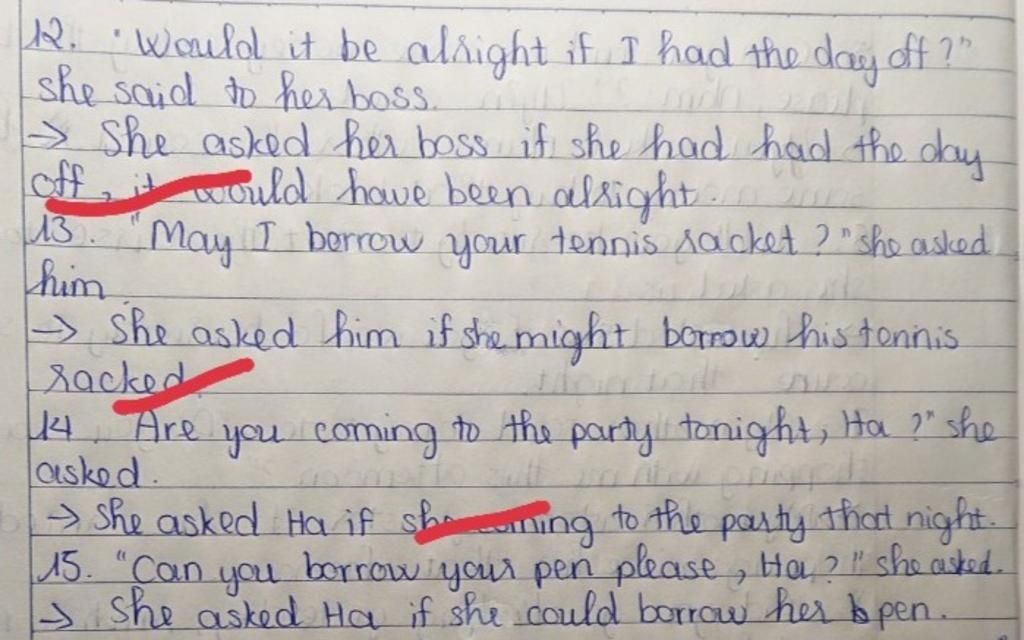 12. "Would it be alright if I had the day off?"
she said to her boss.
→ She asked her boss if she had had the day
off, it would have been alright.
13. "May I borrow your tennis racket?" she asked
him.
→ She asked him if she might borrow his tennis
racked.
14. Are you coming to the party tonight, Ha?" she
asked.
→ She asked Ha if she coming to the party that night.
15. "Can you borrow your pen please, Ha?" she asked.
→ She asked Ha if she could borrow her pen.